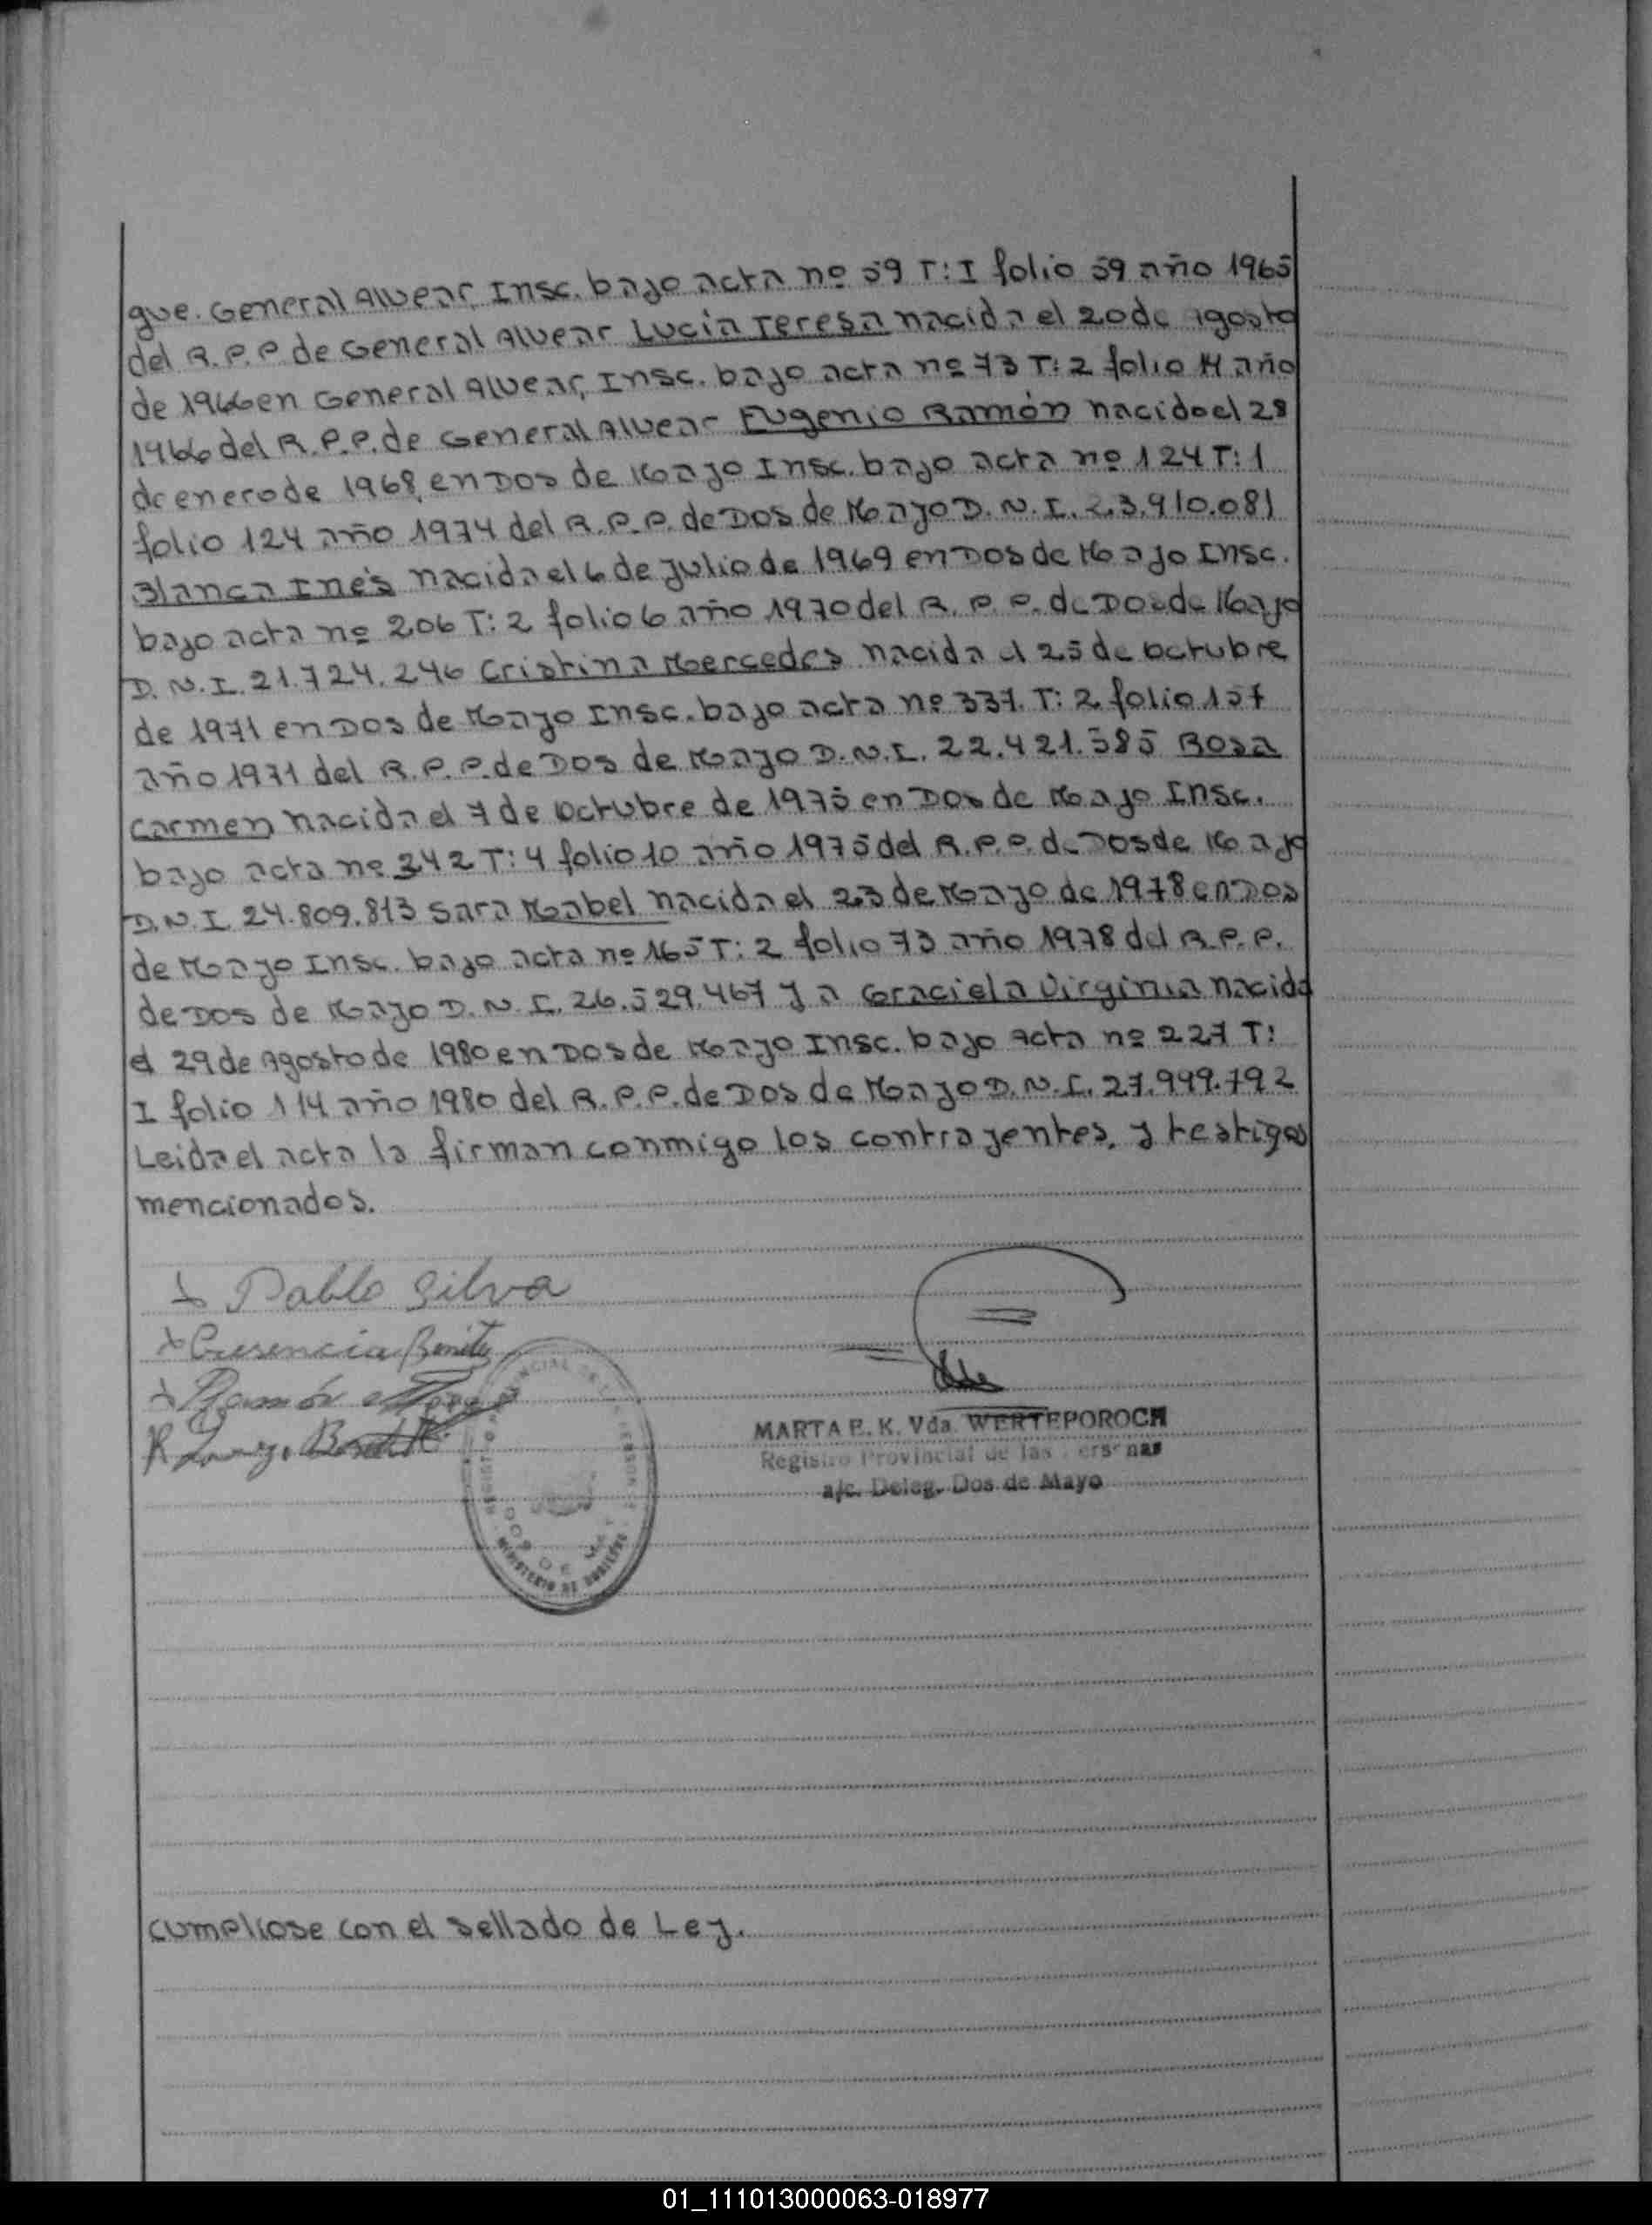 gue. General Alvear, Insc. bajo acta nº 59 T: I folio 59 año 1965
del R.P.P. de General Alvear Lucía Teresa nacida el 20 de agosto
de 1966 en General Alvear, Insc. bajo acta nº 73 T: 2 folio 14 año
1966 del R.P.P. de General Alvear Eugenio Ramón nacido el 28
de enero de 1968, en Dos de Mayo Insc. bajo acta nº 124 T: 1
folio 124 año 1974 del R.P.P. de Dos de Mayo D.N.I. 23.910.081
Blanca Inés nacida el 6 de julio de 1969 en Dos de Mayo Insc.
bajo acta nº 206 T: 2 folio 6 año 1970 del R.P.P. de Dos de Mayo
D.N.I. 21.724.246 Cristina Mercedes nacida el 25 de octubre
de 1971 en Dos de Mayo Insc. bajo acta nº 337. T: 2 folio 157
año 1971 del R.P.P. de Dos de Mayo D.N.I. 22.421.585 Rosa
Carmen nacida el 7 de octubre de 1975 en Dos de Mayo Insc.
bajo acta nº 342 T: 4 folio 10 año 1975 del R.P.P. de Dos de Mayo
D.N.I. 24.809.813 Sara Mabel nacida el 23 de Mayo de 1978 en Dos
de Mayo Insc. bajo acta nº 165 T: 2 folio 73 año 1978 del R.P.P.
de Dos de Mayo D.N.I. 26.529.467 y a Graciela Virginia nacida
el 29 de Agosto de 1980 en Dos de Mayo Insc. bajo acta nº 227 T:
I folio 114 año 1980 del R.P.P. de Dos de Mayo D.N.I. 27.999.792
Leida el acta la firman conmigo los contrayentes, y testigos
mencionados.
Pablo Silva
Cresencia Benitez
Ramón
MARTA E. K. Vda. WERTEPOROCH
Registro Provincial de las Personas
a/c. Deleg. Dos de Mayo
MINISTERIO DE GOBIERNO
DOS DE MAYO
Cumpliose con el sellado de Ley.
01_111013000063-018977